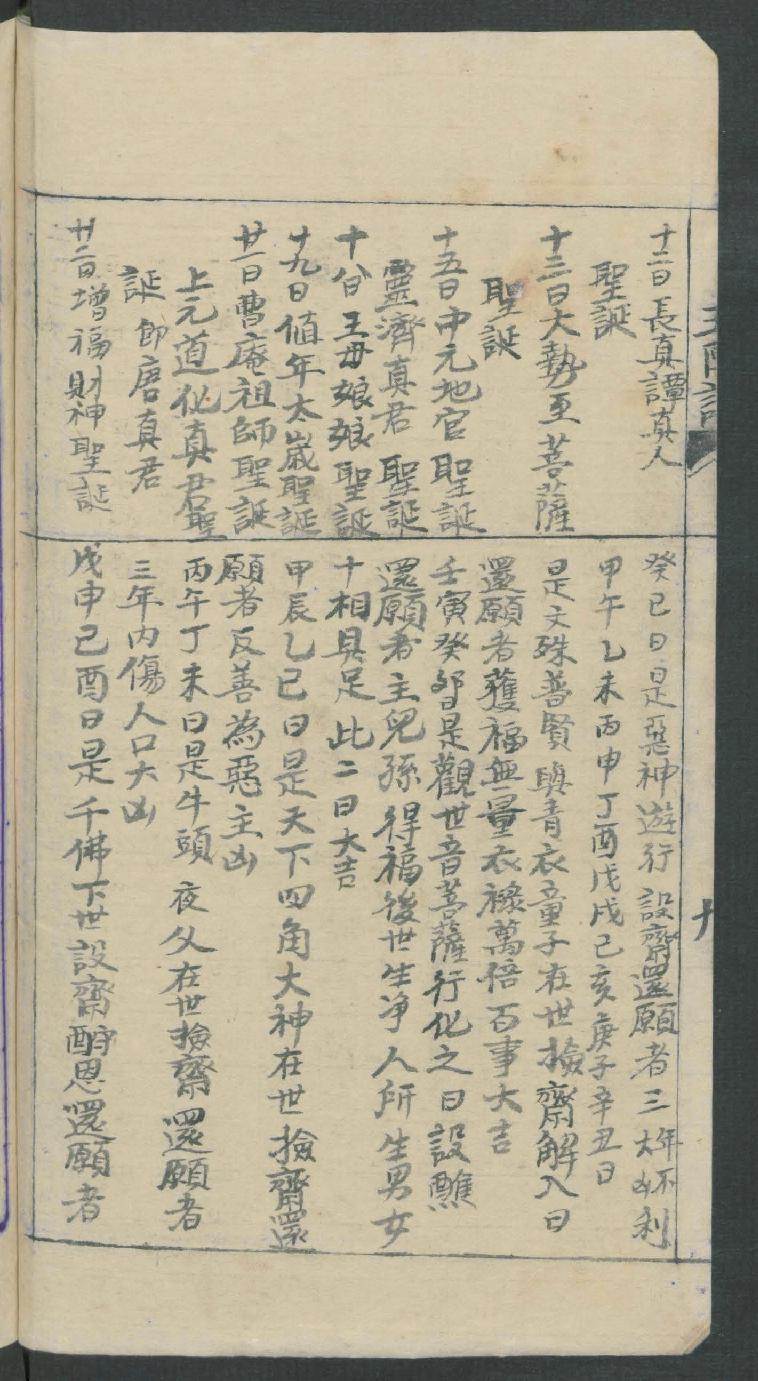 十二日長真譚真人
聖誕
十三日大勢至菩薩
聖誕
十五日中元地官聖誕
靈濟真君聖誕
十八日王母娘娘聖誕
十九日值年太歲聖誕
廿一日曹庵祖師聖誕
上元道化真君聖
誕即唐真君
廿二日增福財神聖誕
癸巳日是惡神遊行設齋還願者三年不利大凶
甲午乙未丙申丁酉戊戌己亥庚子辛丑日
是文殊普賢與青衣童子在世撿齋解入日
還願者獲福無量衣祿萬倍百事大吉
壬寅癸卯日是觀世音菩薩行化之日設醮
還願者主兒孫得福後世生净人所生男女
十相具足此二日大吉
甲辰乙巳日是天下四角大神在世撿齋還
願者反善為惡主凶
丙午丁未日是牛頭夜父在世撿齋還願者
三年内傷人口大凶
戊申己酉日是千佛下世設齋酧恩還願者